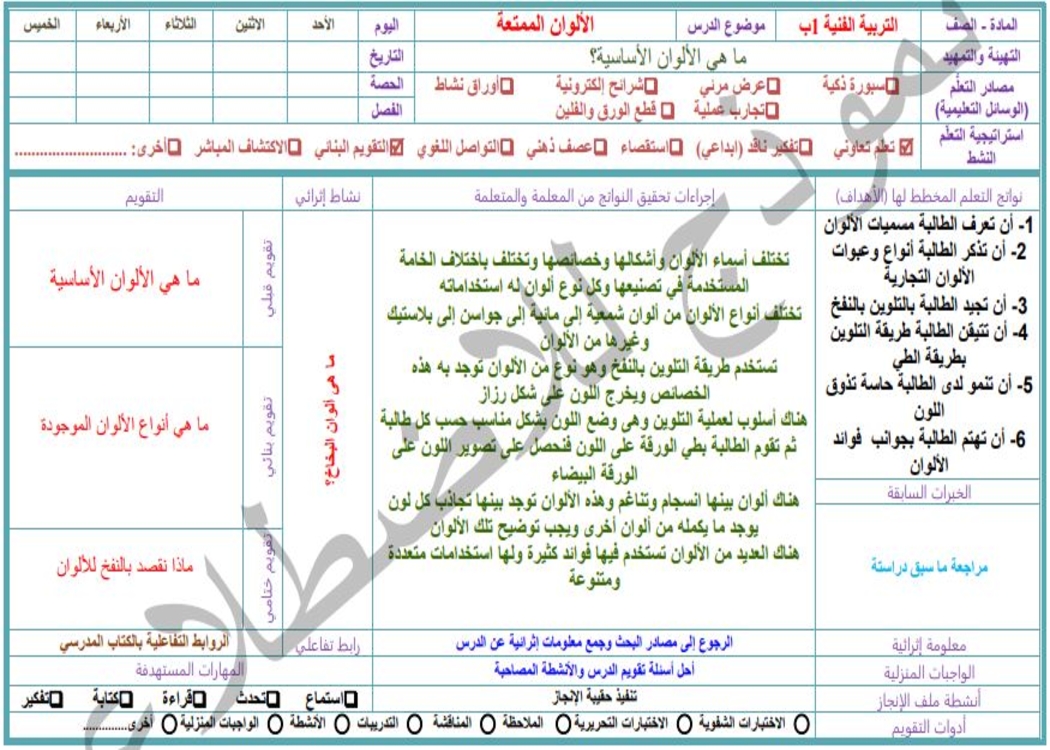 المادة - الصف	التربية الفنية 1ب	موضوع الدرس	الألوان الممتعة	اليوم	الأحد	الاثنين	الثلاثاء	الأربعاء	الخميس
التهيئة والتمهيد	ما هي الألوان الأساسية؟	التاريخ
مصادر التعلّم
(الوسائل التعليمية)
سبورة ذكية	عرض مرئي	شرائح إلكترونية	أوراق نشاط	الحصة
تجارب عملية	قطع الورق والفلين	الفصل
استراتيجية التعلّم
النشط
تعلم تعاوني	تفكير ناقد (ابداعي)	استقصاء	عصف ذهني	التواصل اللغوي	التقويم البنائي	الاكتشاف المباشر	أخرى: ...........................
نواتج التعلم المخطط لها (الأهداف)	إجراءات تحقيق النواتج من المعلمة والمتعلمة	نشاط إثرائي	التقويم
1- أن تعرف الطالبة مسميات الألوان
2- أن تذكر الطالبة أنواع وعبوات
الألوان التجارية
3- أن تجيد الطالبة بالتلوين بالنفخ
4- أن تتيقن الطالبة طريقة التلوين
بطريقة الطي
5- أن تنمو لدى الطالبة حاسة تذوق
اللون
6- أن تهتم الطالبة بجوانب فوائد
الألوان
الخبرات السابقة
مراجعة ما سبق دراستة
تختلف أسماء الألوان وأشكالها وخصائصها وتختلف باختلاف الخامة
المستخدمة في تصنيعها وكل نوع ألوان له استخداماته
تختلف أنواع الألوان من ألوان شمعية إلى مائية إلى جواسن إلى بلاستيك
وغيرها من الألوان
تستخدم طريقة التلوين بالنفخ وهو نوع من الألوان توجد به هذه
الخصائص ويخرج اللون على شكل رزاز
هناك أسلوب لعملية التلوين وهى وضع اللون بشكل مناسب حسب كل طالبة
ثم تقوم الطالبة بطي الورقة على اللون فنحصل على تصوير اللون على
الورقة البيضاء
هناك ألوان بينها انسجام وتناغم وهذه الألوان توجد بينها تجاذب كل لون
يوجد ما يكمله من ألوان أخرى ويجب توضيح تلك الألوان
هناك العديد من الألوان تستخدم فيها فوائد كثيرة ولها استخدامات متعددة
ومتنوعة
ما هى ألوان البخاخ؟
تقويم قبلي	ما هي الألوان الأساسية
تقويم بنائي	ما هي أنواع الألوان الموجودة
تقويم ختامي	ماذا نقصد بالنفخ للألوان
معلومة إثرائية	الرجوع إلى مصادر البحث وجمع معلومات إثرائية عن الدرس	رابط تفاعلي	الروابط التفاعلية بالكتاب المدرسي
الواجبات المنزلية	أحل أسئلة تقويم الدرس والأنشطة المصاحبة	المهارات المستهدفة
أنشطة ملف الإنجاز	تنفيذ حقيبة الإنجاز	استماع	تحدث	قراءة	كتابة	تفكير
أدوات التقويم	الاختبارات الشفوية	الاختبارات التحريرية	الملاحظة	المناقشة	التدريبات	الأنشطة	الواجبات المنزلية	أخرى..............
نموذج للاضطلاع